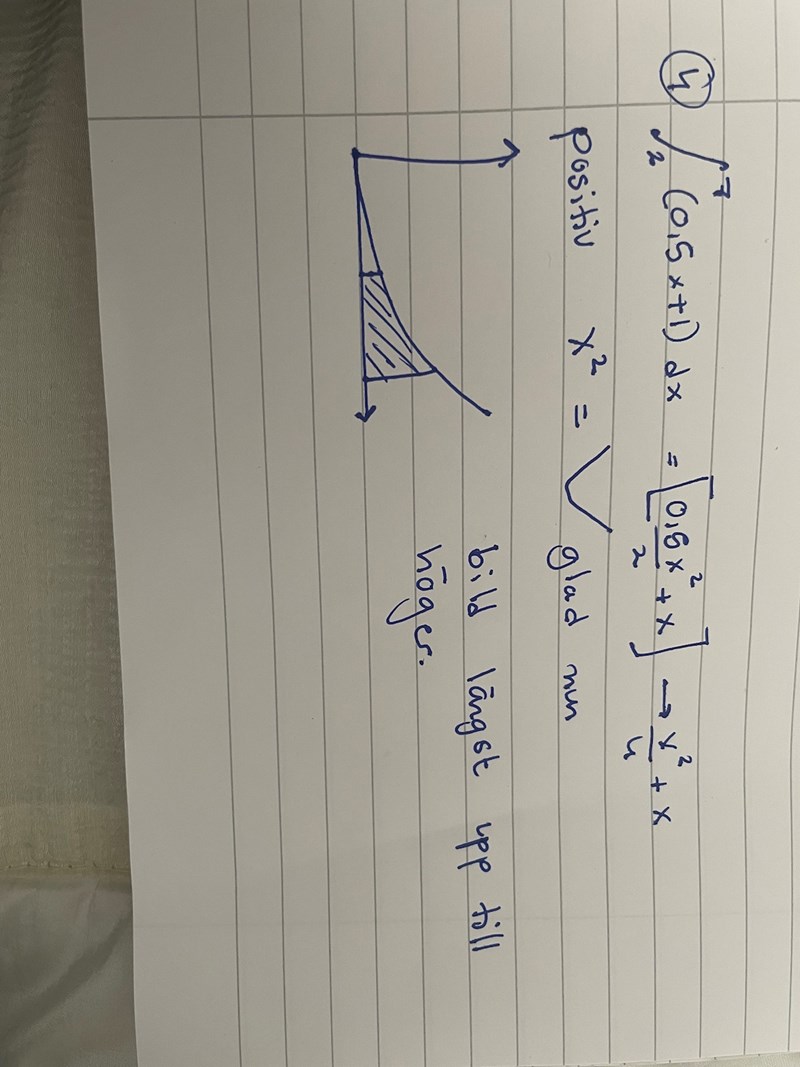 4) ∫₂⁷ (0,5x+1) dx = [0,5x²/2 + x] → x²/4 + x
positiv x² = ∪ glad mun
bild längst upp till
höger.